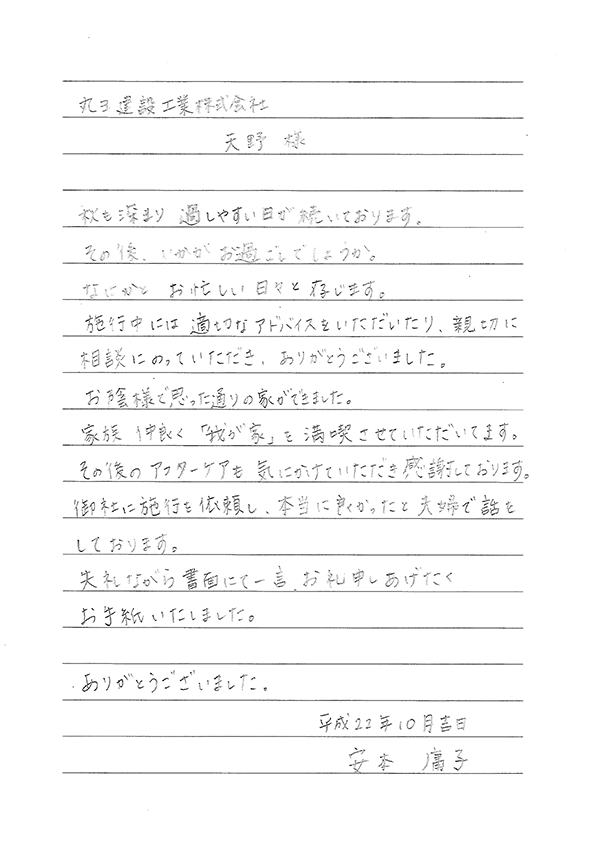 丸ヨ建設工業株式会社
天野 様
秋も深まり 過しやすい日が続いております。
その後、いかがお過ごしでしょうか。
なにかと お忙しい日々と存じます。
施行中には適切なアドバイスをいただいたり、親切に
相談にのっていただき、ありがとうございました。
お陰様で思った通りの家ができました。
家族 仲良く「我が家」を満喫させていただいてます。
その後のアフターケアも気にかけていただき感謝しております。
御社に施行を依頼し、本当に良かったと夫婦で話を
しております。
失礼ながら書面にて一言、お礼申しあげたく
お手紙いたしました。
ありがとうございました。
平成22年10月吉日
安本 子